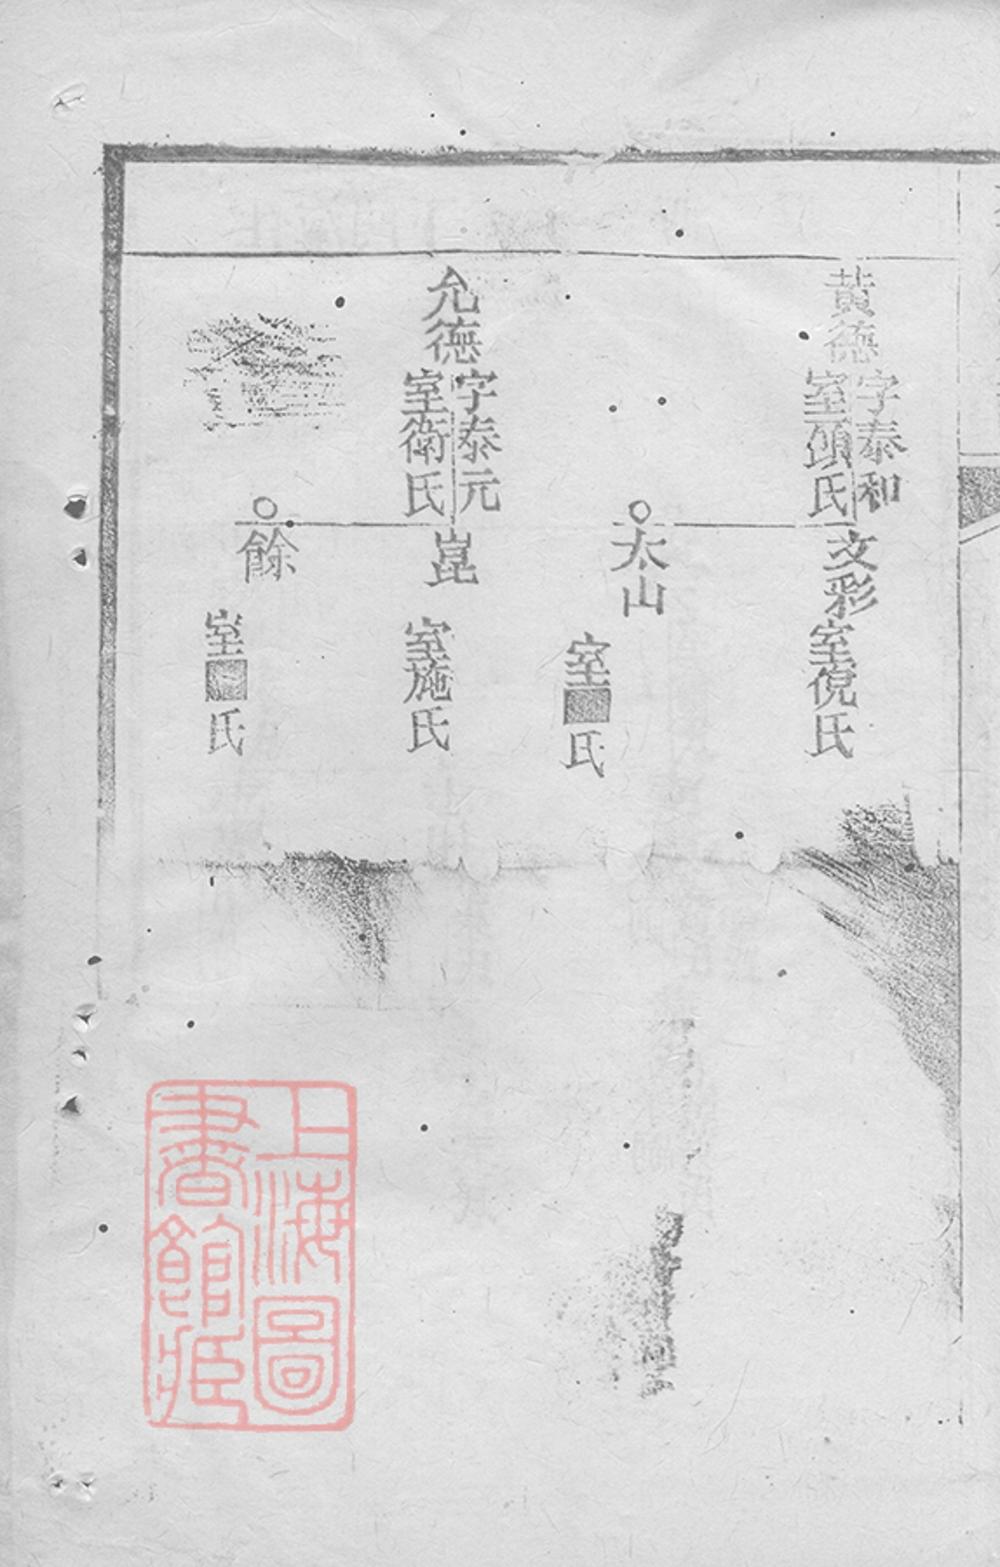 黃德
字泰和
室頭氏
文彩
室倪氏
太山
室■氏
允德
字泰元
室衛氏
崑
室施氏
餘
室■氏
上海圖
書館藏